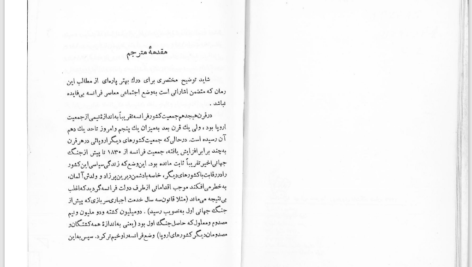 مقدمهٔ مترجم
شاید توضیح مختصری برای درك بهتر پاره‌ای از مطالب این
رمان که متضمن اشاراتی است به‌وضع اجتماعی معاصر فرانسه بی‌فایده
نباشد.
در قرن هیجدهم جمعیت کشور فرانسه تقریباً به‌اندازهٔ نیمی از جمعیت
اروپا بود، ولی یك قرن بعد به‌میزان یك پنجم و امروز تا حد یك دهم
آن رسیده است. در حالی که جمعیت کشورهای دیگر اروپائی در هر قرن
به‌چند برابر افزایش یافته، جمعیت فرانسه از ۱۸۳۰ تا پیش از جنگ
جهانی اخیر تقریباً ثابت مانده بود. این وضع که زندگی سیاسی این کشور
را در رقابت با کشورهای دیگر، خاصه با دشمن دیرین پر زاد و ولدش آلمان،
به‌خطر می‌افکند موجب اقداماتی از طرف دولت فرانسه گردید که اغلب
بی‌نتیجه می‌ماند (مثلا قانون سه سال خدمت اجباری سربازی که پیش از
جنگ جهانی اول به‌تصویب رسید). دو میلیون کشته و دو ملیون و نیم
مصدوم و معلول که حاصل جنگ اول بود (یعنی به‌اندازهٔ همه کشتگان و
مصدومان دیگر کشورهای اروپا) وضع فرانسه را وخیم‌تر کرد. سپس به این